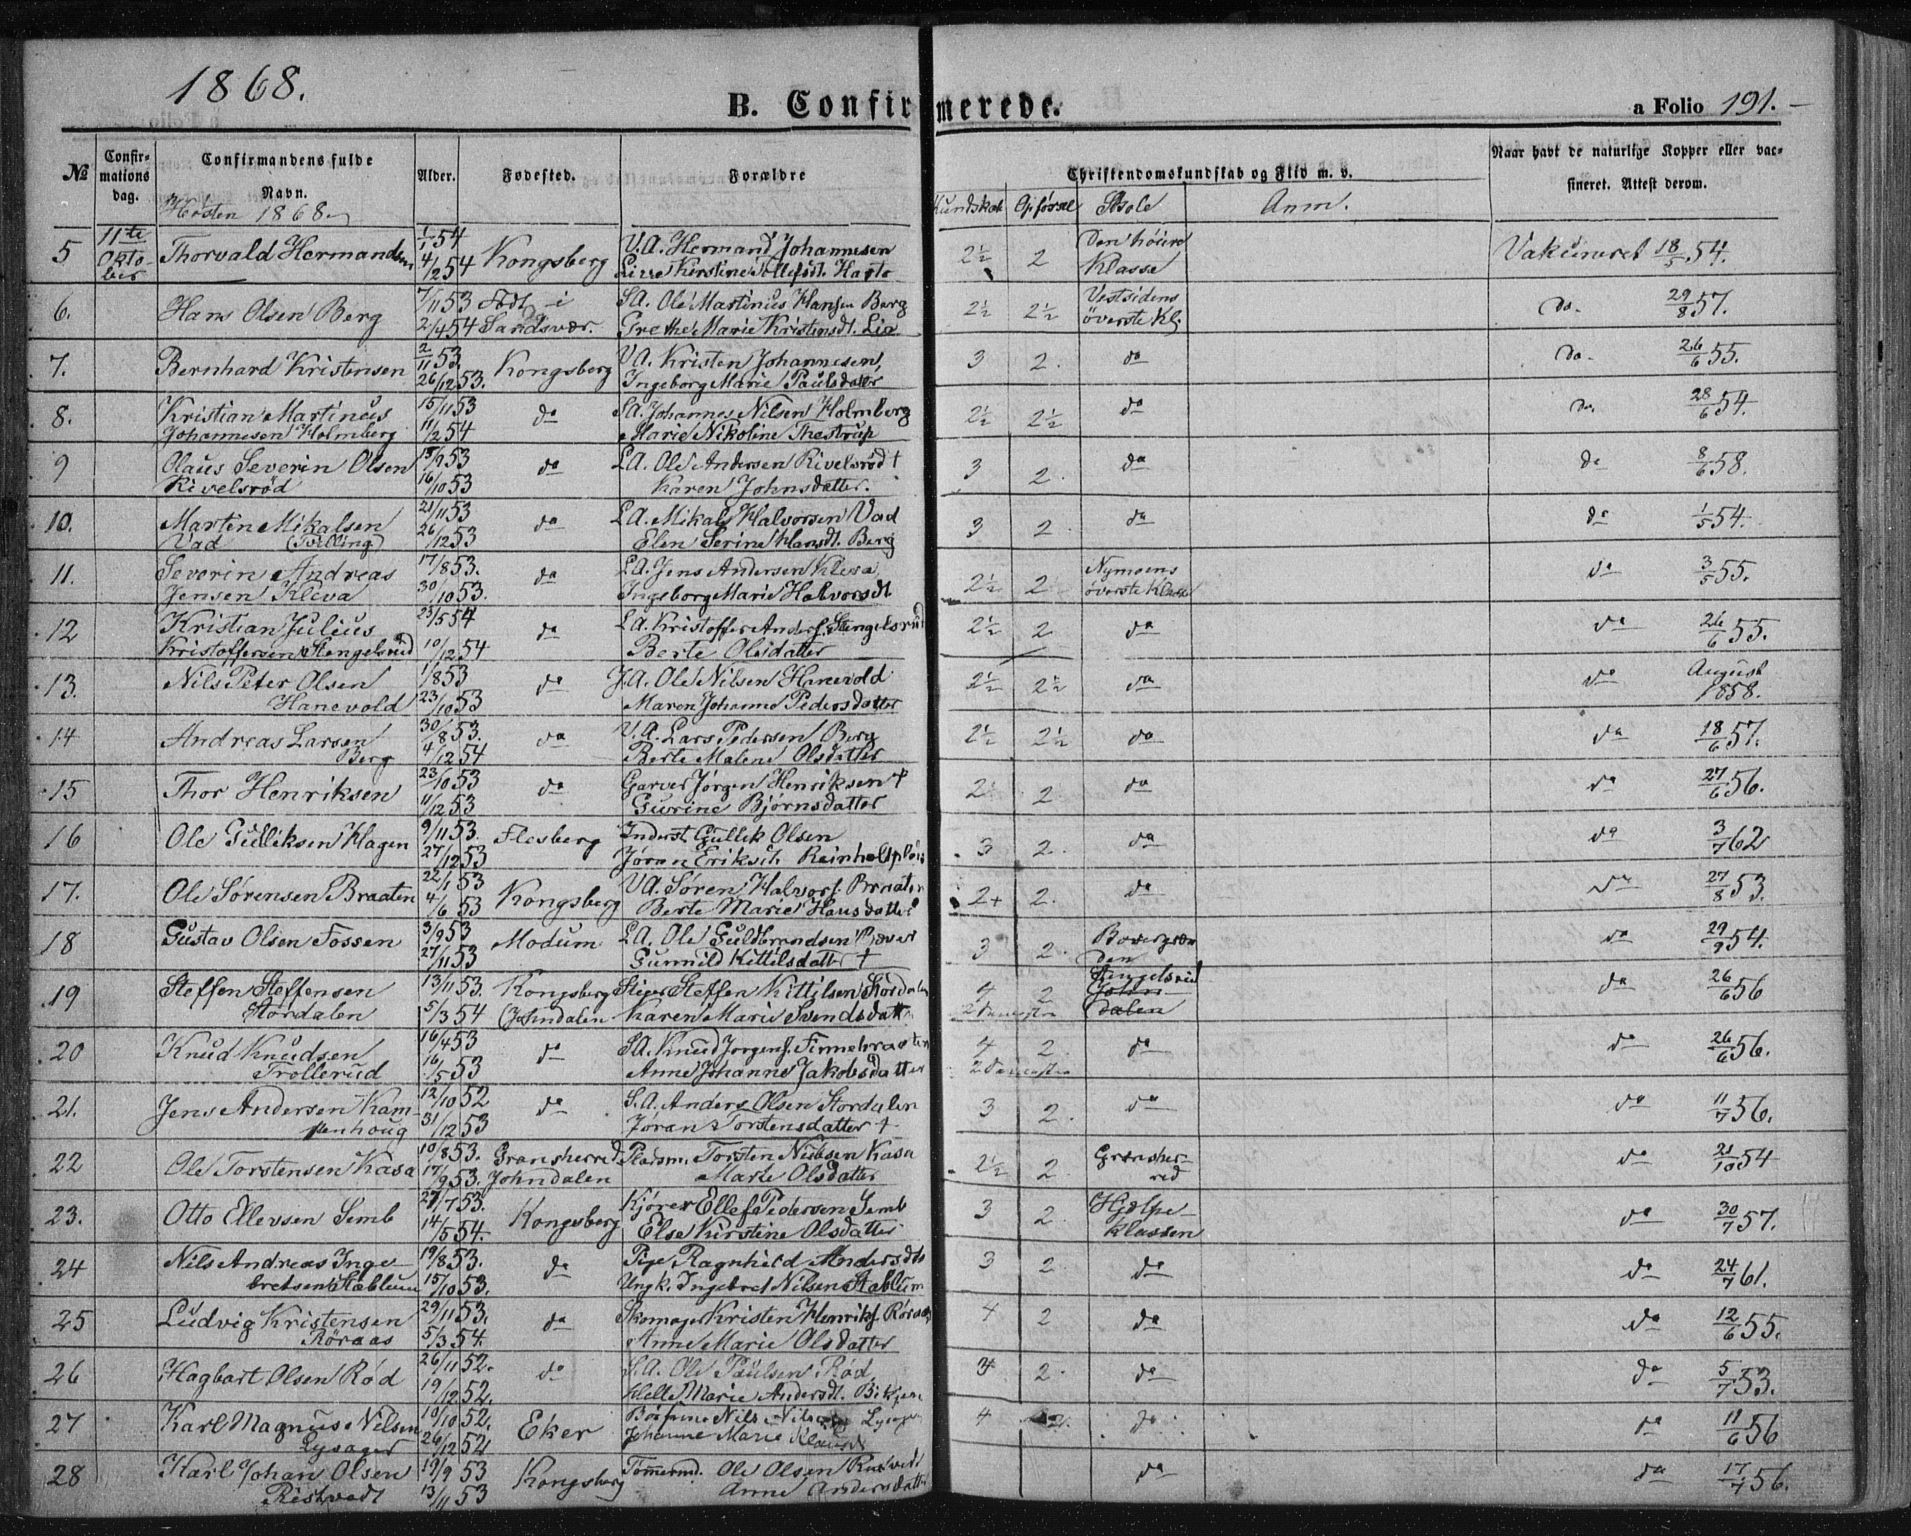 1868.
B. Confirmerede.
a Folio 191.
№ Confirmations dag. Confirmandens fulde Navn. Alder. Fødested. Forældre Christendomskundskab og Flid m. v. Naar havt de naturlige Kopper eller vaccineret. Attest derom.
Høsten 1868 Kundskab Opførsel Skole Anm.
5 11te Oktober Thorvald Hermandsen 1/1 54 4/2 54 Kongsberg V.A. Hermand Johannesen 2½ 2 Den høiere Klasse Vakcineret 18/5 54.
6. Hans Olsen Berg 7/11 53 2/4 54 Født i Sandsvær. S.A. Ole Martinus Hansen Berg Grethe Marie Kristensdt. Lia 2½ 2½ Vestsidens øverste Kl. do. 29/8 57.
7. Bernhard Kristensen 2/11 53. 26/12 53. Kongsberg V.A. Kristen Johannesen, Ingeborg Marie Paulsdatter 3 2. do 26/6 55.
8. Kristian Martinus Johannesen Holmberg 15/11 53 11/2 54 do S.A. Johannes Nilsen Holmberg Marie Nikoline Thestrup 2½ 2½ do do. 28/6 54.
9 Olaus Severin Olsen Rivelsrød 15/9 53 16/10 53 do L.A. Ole Andersen Rivelsrød † Karen Johnsdatter. 3 2. do do 8/6 58.
10. Martin Mikalsen Vad (Tvilling) 21/11 53 26/12 53 do L.A. Mikal Halvorsen Vad Elen Serine Hansdt. Berg 3 2. do do 1/5 54.
11. Severin Andreas Jensen Kleva 17/8 53. 30/10 53. do L.A. Jens Andersen Kleva Ingeborg Marie Halvorsdt 2½ 2 Nymoens øverste Klasse do 3/5 55.
12 Kristian Julius Kristoffersen Stengelsrud 23/5 54 10/12 54 do L.A. Kristoffer Anders. Stengelsrud Berte Olsdatter 2½ 2 do do 26/6 55.
13. Nils Peter Olsen Hanevold 1/8 53 23/10 53 do J.A. Ole Nilsen Hanevold Maren Johanne Pedersdatter 2½ 2½ do do August 1858.
14 Andreas Larsen Berg 30/8 53. 4/12 54 do V.A. Lars Pedersen Berg Berte Malene Olsdatter 2½ 2½ do do 18/6 57.
15 Thor Henriksen 23/10 53 11/12 53 do Garver Jørgen Henriksen † Gurine Bjørnsdatter 2 do do 27/6 56.
16 Ole Gulliksen Hagen 9/11 53. 27/12 53 Flesberg Inderst Gullik Olsen 3 2. do do 3/7 62
17. Ole Sørensen Braaten 22/1 53 4/6 53 Kongsberg V.A. Søren Halvors. Braaten Berte Marie Hansdatter 2+ 2. do do 27/8 53.
18 Gustav Olsen Fossen 3/9 53 27/11 53 Modum L.A. Ole Guldbrandsen Gunnild Kittilsdatter † 3 2. do 29/9 54.
19 Steffen Steffensen Stordalen 13/11 53 5/3 54 Kongsberg (Johndalen Stiger Steffen Kittilsen Stordalen Karen Marie Svendsdatt 4 2 Stengelsrud Johndalen do 26/6 56
20 Knud Knudsen Trollerud 16/4 53 16/5 53 do S.A. Knud Jorgens. Finnebraaten Anne Johanne Jakobsdatter 4 2. do do 26/6 56.
21. Jens Andersen Kampenhoug 12/10 52 31/12 53 do S.A. Anders Olsen Stordalen Jøran Torstensdatter † 3 2. do do 11/7 56.
22 Ole Torstensen Kasa 10/8 53. 17/9 53. Gransherred Johndalen Pladsm. Torsten Nielsen Kasa Marte Olsdatter 2½ 2 Gransherred do 21/10 54
23. Otto Ellevsen Semb 27/7 53. 14/5 54. Kongsberg Kjører Ellef Pedersen Semb Else Kirstine Olsdatter 3 2. Hjelpeklassen do 30/7 57.
24 Nils Andreas Ingebretsen Stablum 19/8 53. 15/10 53. do Pige Ragnhild Andersdt. Ungk. Ingebret Nilsen Stablum 3 2. do do 24/7 61.
25 Ludvig Kristensen Røraas 29/11 53. 5/3 54. do Skomager Kristen Henriks. Røraas Anne Marie Olsdatter 4 2 do do 12/6 55.
26 Hagbart Olsen Rød 26/11 52. 19/12 52. do S.A. Ole Paulsen Rød, Helle Marie Andersdt. 4 2. do do 5/7 53.
27 Karl Magnus Nilsen Lysager 10/10 52. 26/12 52 Eker Nils Nilsen Johanne Marie 4 2. do do 11/6 56
28 Karl Johan Olsen Ristvedt 19/9 53 13/11 53 Kongsberg Tømmermd. Ole Olsen Anne Andersdatter do do 17/7 56.